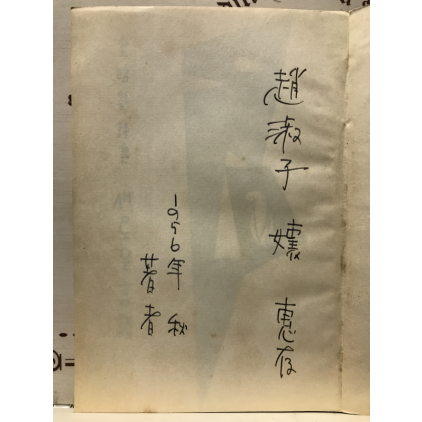 趙淑子 孃 惠存
1996年 秋
著者